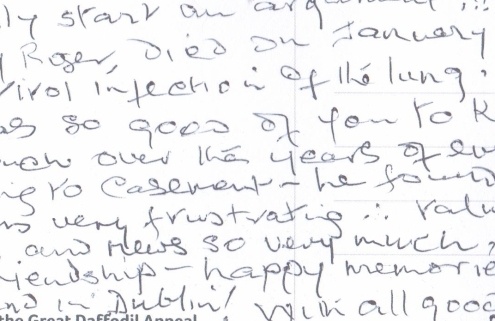 ly start an argument !!!
Roger, died on January
viral infection of the lung.
as so good of you to k
over the years of ev
ing to Casement - he found
ns very frustrating ∴ valu
and news so very much,
riendship - happy memorie
nd in Dublin! With all good
the Great Daffodil Appeal